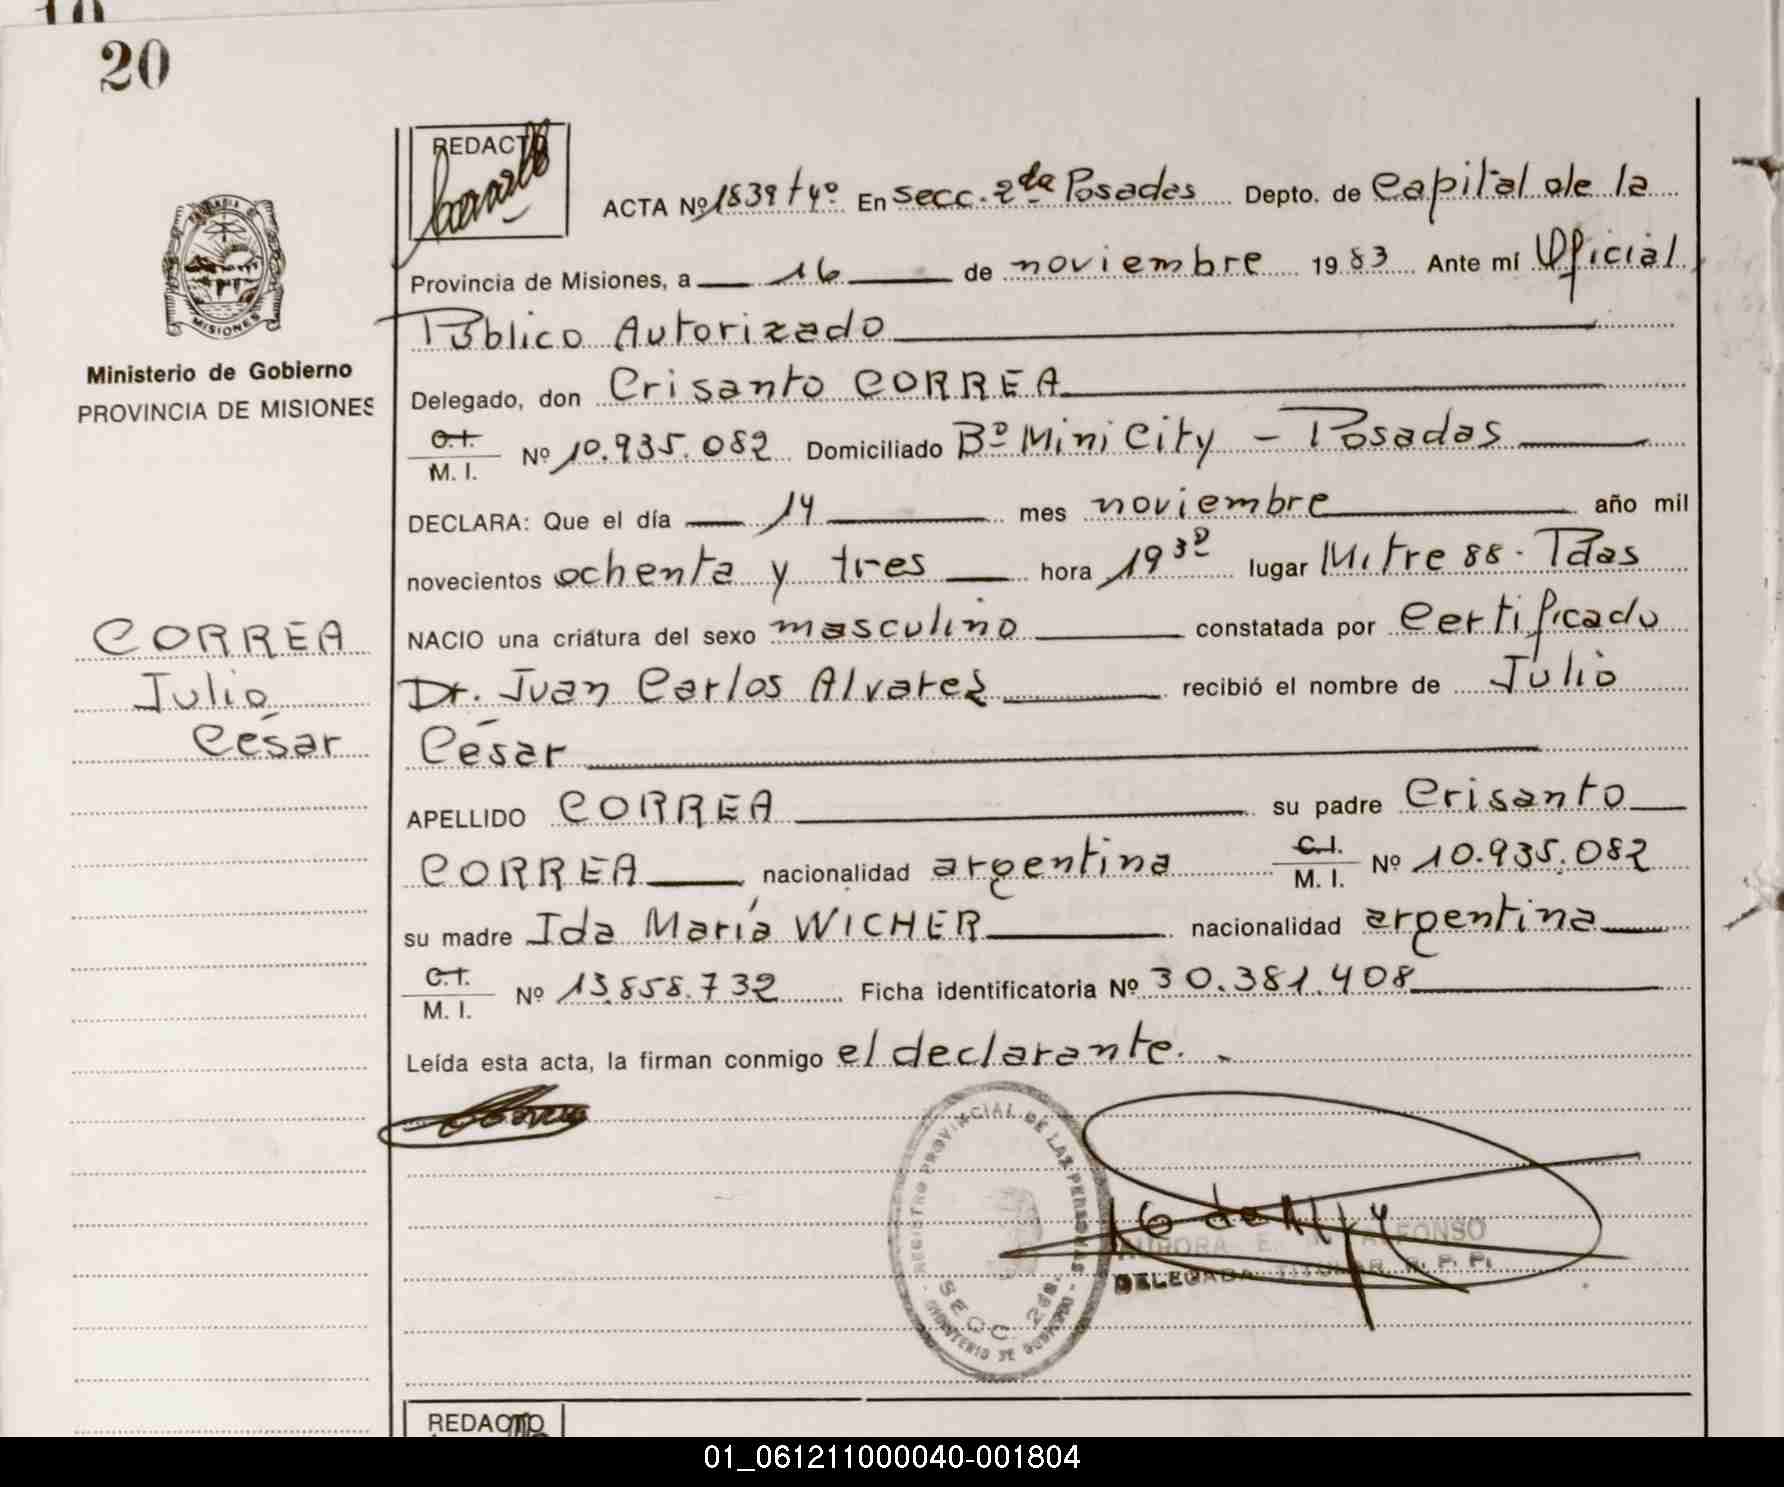 20
REDACTO
ACTA Nº 1839 tº 4º En secc. 2da Posadas Depto. de Capital de la
MISIONES
Provincia de Misiones, a 16 de noviembre 1983 Ante mí Oficial
Público Autorizado
Ministerio de Gobierno
PROVINCIA DE MISIONES
Delegado, don Crisanto CORREA
C.I. M. I. Nº 10.935.082 Domiciliado Bº Mini City - Posadas
DECLARA: Que el día 14 mes noviembre año mil
novecientos ochenta y tres hora 19 30 lugar Mitre 88 - Pdas
CORREA
Julio
César
NACIO una criatura del sexo masculino constatada por Certificado
Dr. Juan Carlos Alvares recibió el nombre de Julio
César
APELLIDO CORREA su padre Crisanto
CORREA nacionalidad argentina C.I. M. I. Nº 10.935.082
su madre Ida María WICHER nacionalidad argentina
C.I. M. I. Nº 13.858.732 Ficha identificatoria Nº 30.381.408
Leída esta acta, la firman conmigo el declarante.
REGISTRO PROVINCIAL DE LAS PERSONAS
SECC. 2da.
MINISTERIO DE GOBIERNO
AURORA E. ALFONSO
DELEGADA TITULAR R. P. P.
REDACTO
01_061211000040-001804